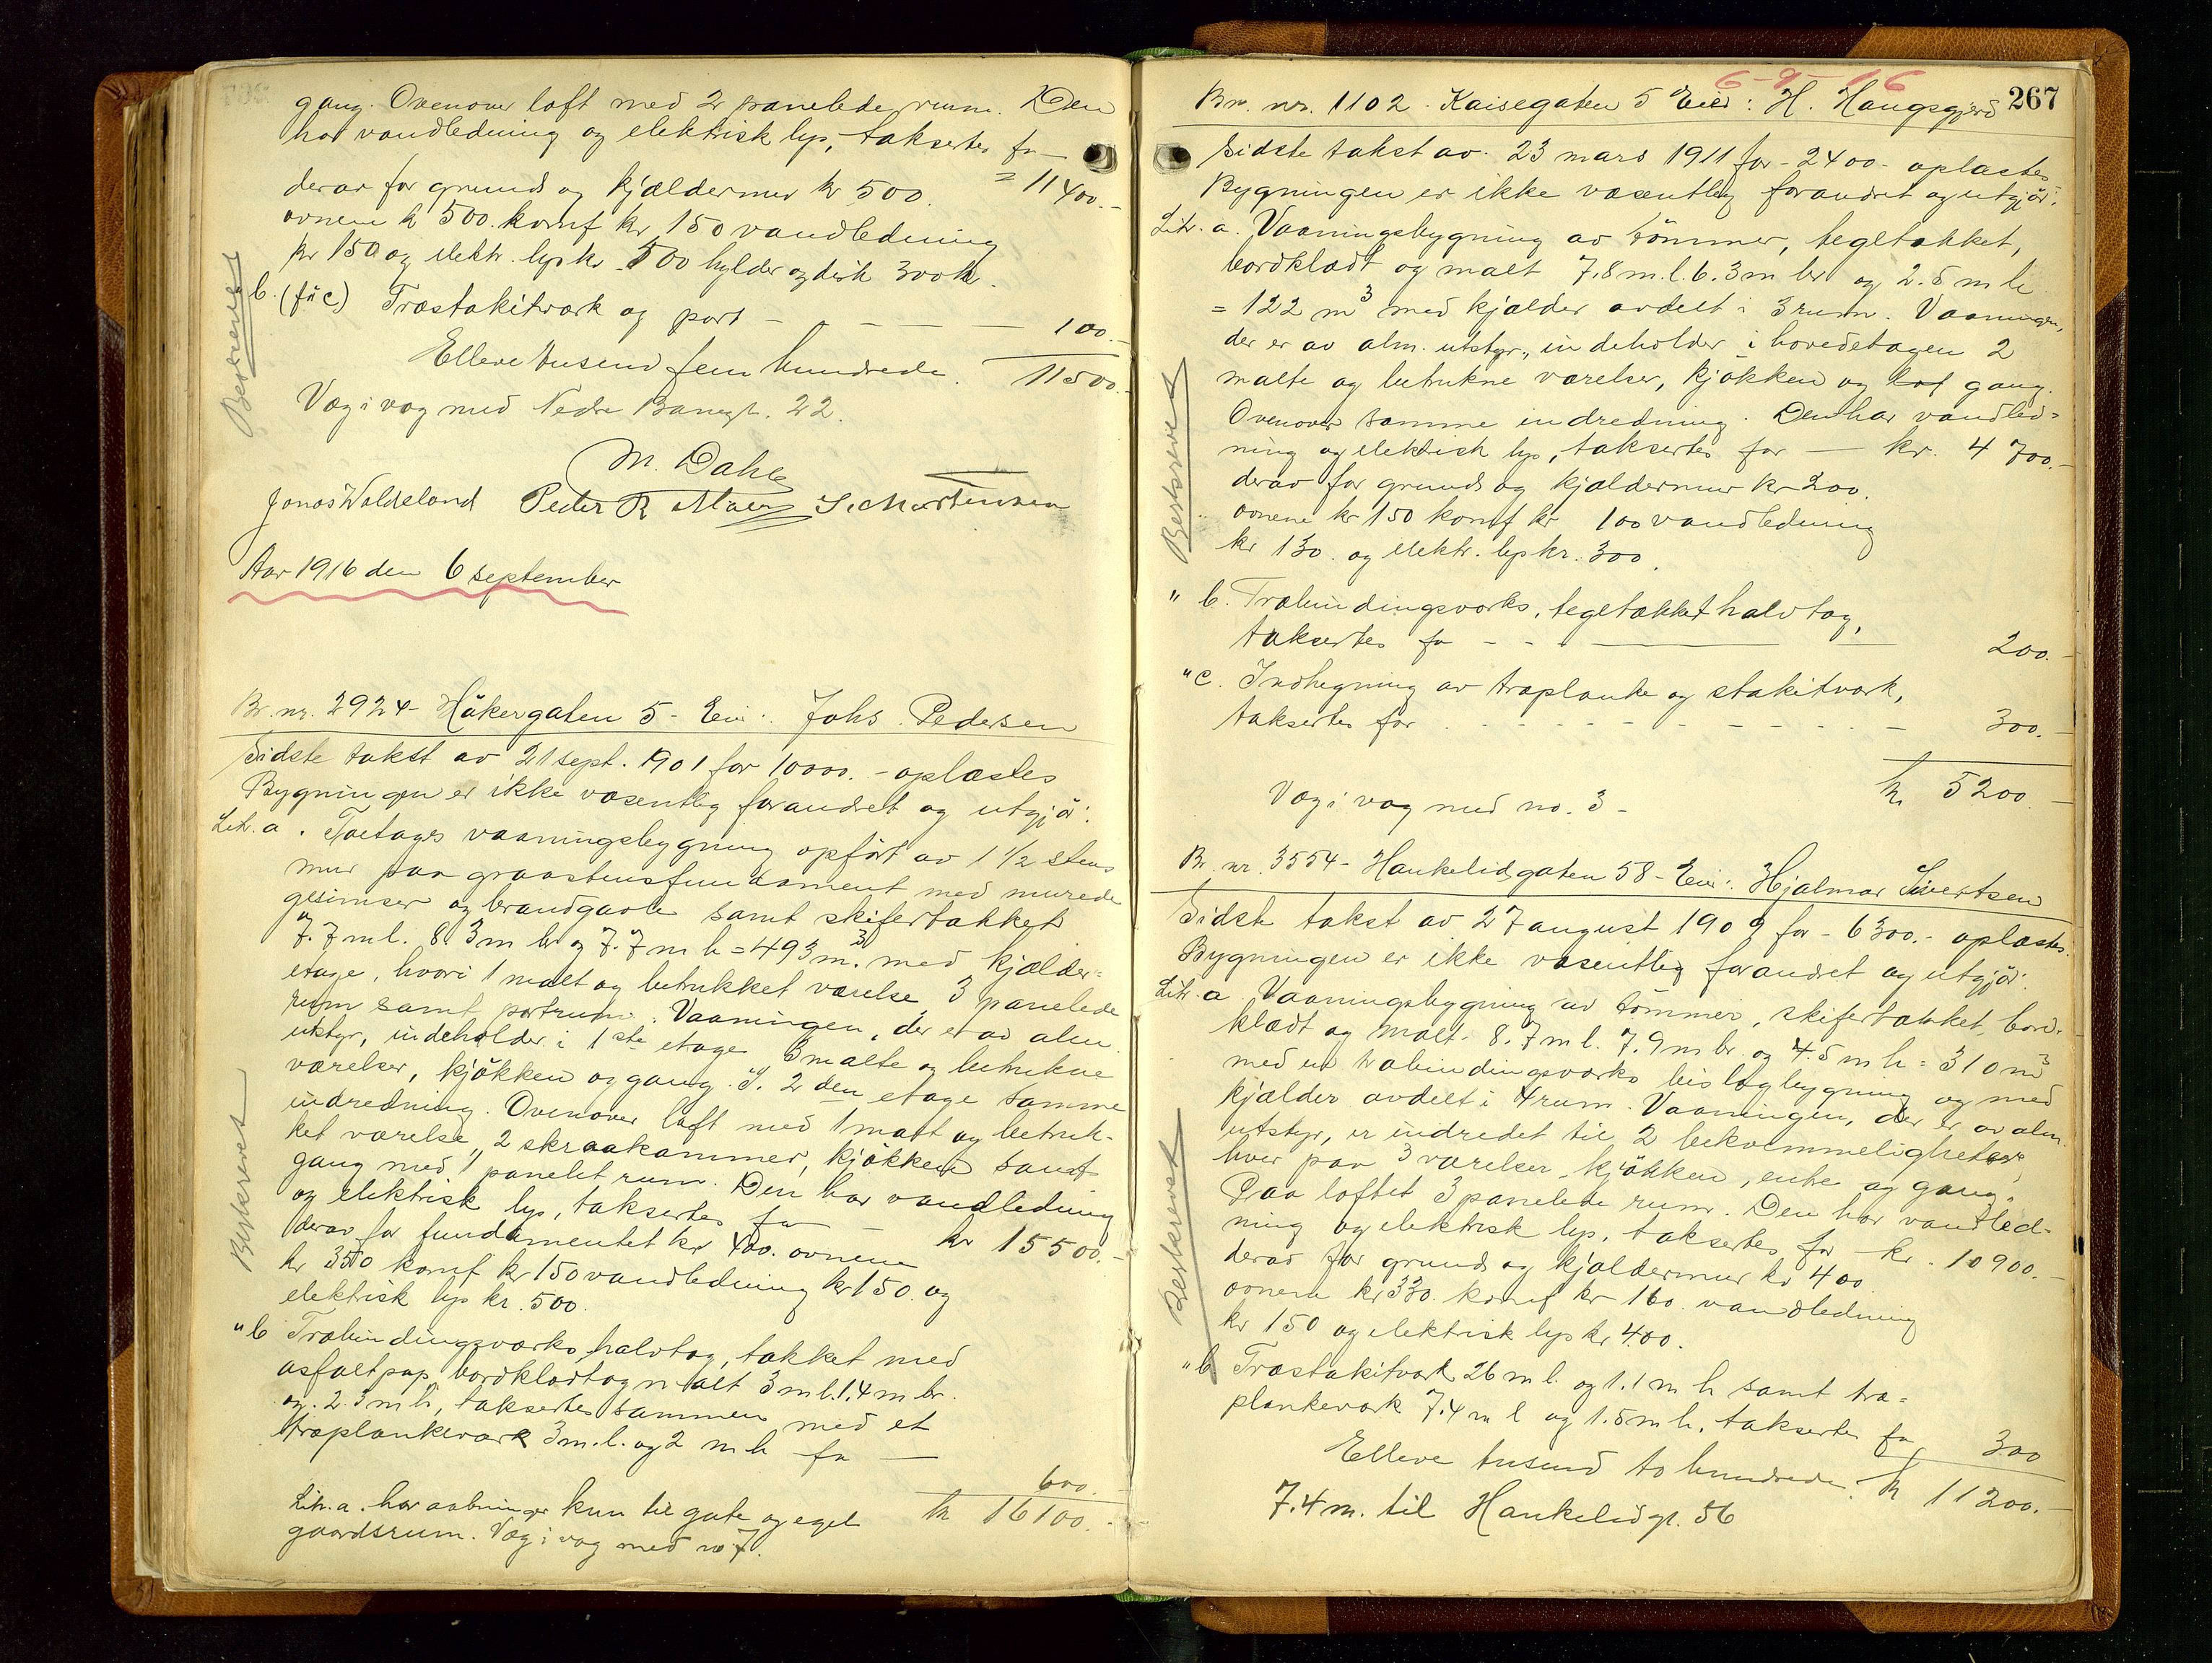 gang. Ovenover loft med 2 panelede rum. Den
har vandledning og elektrisk lys, taksertes for —
= 11400.-
derav for grund og kjældermur kr 500.
ovnene kr 500. komf kr 150 vandledning
kr 150 og elektr. lys kr 500 hylder og disk 300 kr.
b. (før c) Træstakitværk og port - - - - — 100.-
Elleve tusend fem hundrede. 11500.-
Væg i væg med Nedre Banegt. 22.
Beskrevet
M. Dahl
Jonas Woldsland Peder R. Moen S. Martinsen
Aar 1916 den 6 september
Br. nr. 2924 - Håkergaten 5 - Eier: Johs. Pedersen
Sidste takst av 21 sept. 1901 for 10000. - oplæstes
Bygningen er ikke væsentlig forandret og utgjør:
Litr. a. Toetages vaaningsbygning opført av 1 1/2 stens
mur paa graastensfundament med murede
gesimser og brandgavle samt skifertækket
7.7 m l. 8.3 m br og 7.7 m h = 493 m³. med kjælder=
etage, hvori 1 malt og betrukket værelse, 3 panelede
rum samt portrum. Vaaningen, der er av alm.
utstyr, indeholder i 1ste etage 3 malte og betrukne
værelser, kjøkken og gang. I 2den etage samme
indredning. Ovenover loft med 1 malt og betruk-
ket værelse, 2 skraakammer, kjøkken samt
gang med 1 panelet rum. Den har vandledning
og elektrisk lys, taksertes for — kr 15500.-
derav for fundamentet kr 400. ovnene
kr 350 komf kr 150 vandledning kr 150. og
elektrisk lys kr. 500.
Beskrevet
" b Træbindingsværks halvtag, tækket med
asfaltpap, bordklædt og malt 3 m l. 1.4 m br.
og 2.3 m h, taksertes sammen med et
træplankeværk 3 m. l. og 2 m h for — 600.
Litr. a. har aabninger kun til gate og eget kr 16100.-
gaardsrum. Væg i væg med no 7.
6-9-16
267
Br. nr. 1102 - Kaisegaten 5 Eier: H. Haugsgjerd
Sidste takst av 23 mars 1911 for - 2400. - oplæstes
Bygningen er ikke væsentlig forandret og utgjør:
Litr. a. Vaaningsbygning av tømmer, tegltækket,
bordklædt og malt 7.8 m. l. 6.3 m br og 2.5 m h
= 122 m³ med kjælder avdelt i 3 rum. Vaaningen,
der er av alm. utstyr, indeholder i hovedetagen 2
malte og betrukne værelser, kjøkken og gang.
Ovenover samme indredning. Den har vandled=
ning og elektrisk lys, taksertes for — kr. 4700.-
derav for grund og kjældermur kr 200.
ovnene kr 150 komf kr 100 vandledning
kr 130. og elektr. lys kr. 300.
Beskrevet
" b. Træbindingsværks, tegltækket halvtag,
taksertes for - - — — 200.-
" c. Indhegning av træplanke og stakitværk,
taksertes for - - - - - - - - - 300.-
kr 5200.-
Væg i væg med no. 3 -
Br. nr. 3554 - Haukelidsgaten 58 - Eier: Hjalmar Sivertsen
Sidste takst av 27 august 1909 for - 6300. - oplæstes.
Bygningen er ikke væsentlig forandret og utgjør:
Litr. a Vaaningsbygning av tømmer, skifertækket, bord-
klædt og malt. 8.7 m l. 7.9 m br. og 4.5 m h = 310 m³
med en træbindingsværks bislagbygning og med
kjælder avdelt i 4 rum. Vaaningen, der er av alm.
utstyr, er indredet til 2 bekvemmeligheter,
hver paa 3 værelser, kjøkken, entre og gang.
Paa loftet 3 panelede rum. Den har vandled-
ning og elektrisk lys, taksertes for — kr. 10900.-
derav for grund og kjældermur kr 400
ovnene kr 330. komf kr 160. vandledning
kr 150 og elektrisk lys kr 400.
Beskrevet
" b Træstakitværk 26 m l. og 1.1 m h samt træ=
plankeværk 7.4 m l og 1.5 m h, taksertes for 300
Elleve tusend to hundrede. kr 11200.-
7.4 m. til Haukelidgt. 56